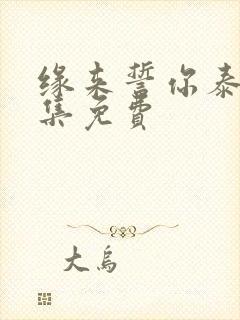 缘来誓你泰
集免费
大鸟